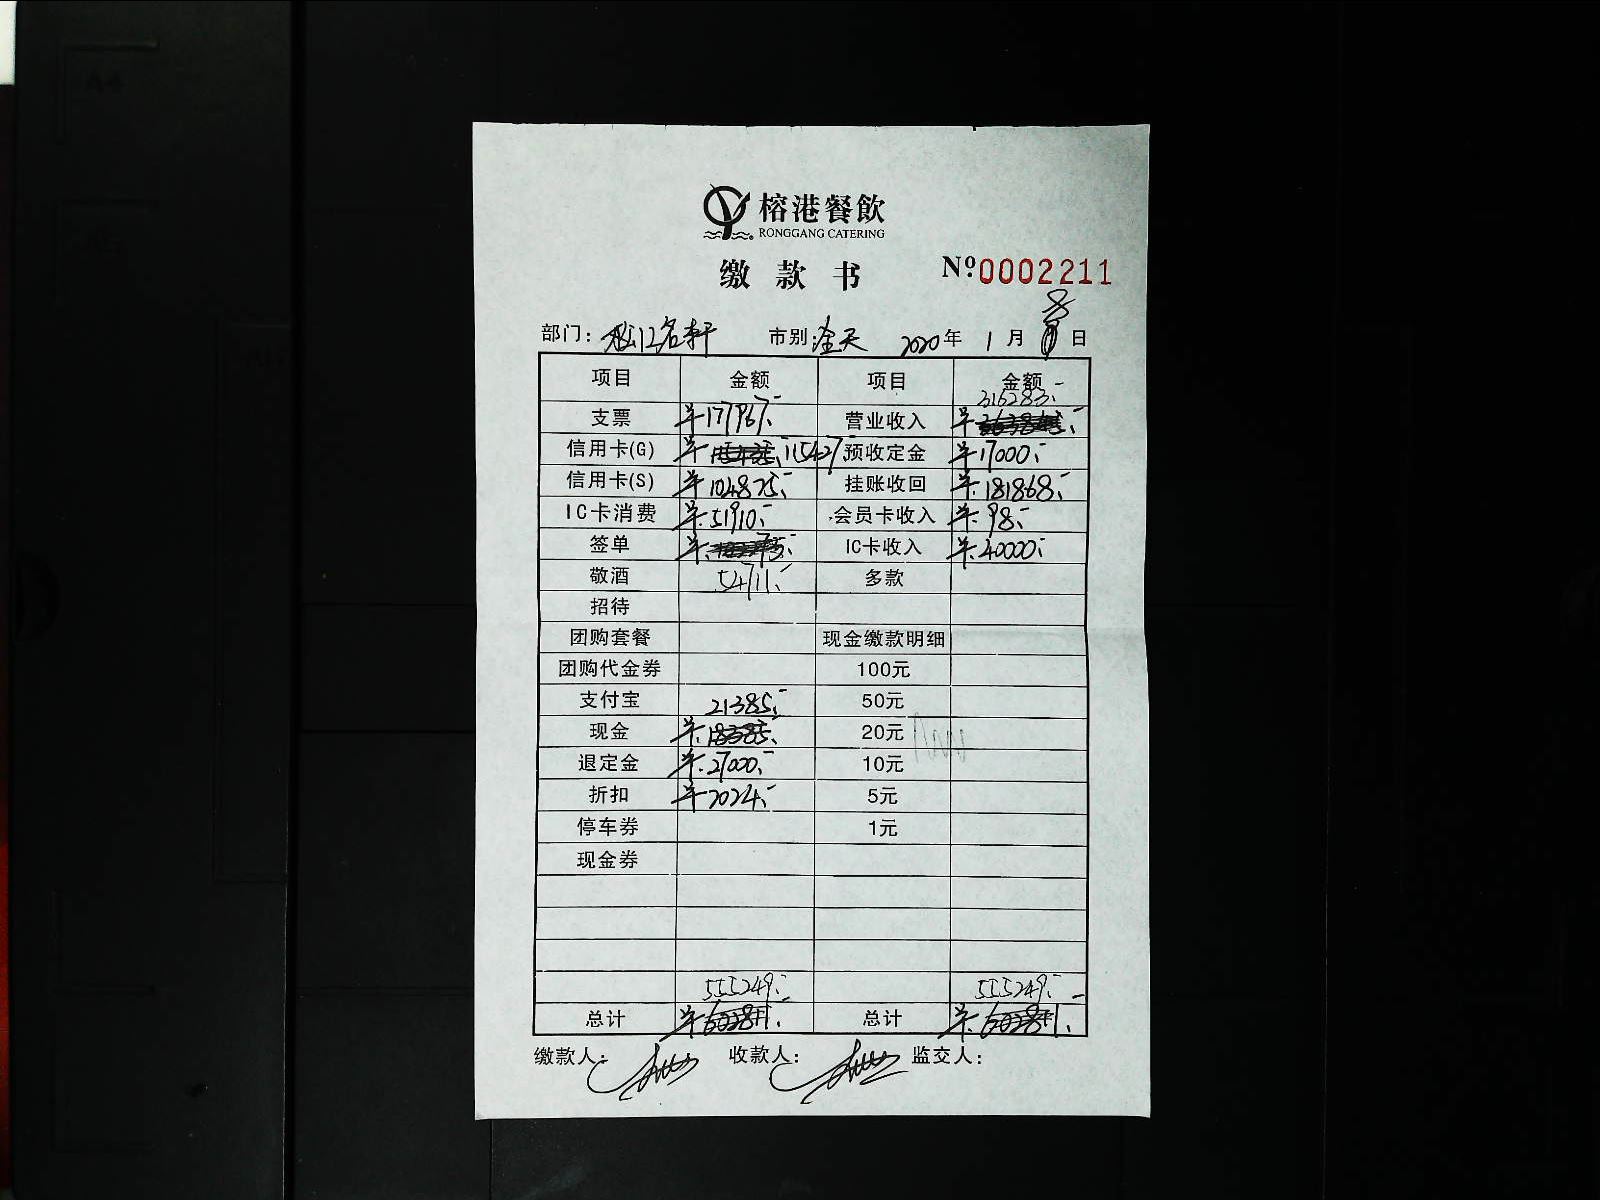 榕港餐飲
RONGGANG CATERING
缴款书 Nº0002211
部门: 松江名轩 市别: 全天 2020年 1月 8日
项目 金额 项目 金额
316283.-
支票 ¥177917.- 营业收入 ¥
信用卡(G) ¥ 115427.- 预收定金 ¥17000.-
信用卡(S) ¥104875.- 挂账收回 ¥181868.-
IC卡消费 ¥51910.- 会员卡收入 ¥98.-
签单 ¥ IC卡收入 ¥40000.-
敬酒 54711.- 多款
招待
团购套餐 现金缴款明细
团购代金券 100元
支付宝 21385.- 50元
现金 ¥18385.- 20元
退定金 ¥27000.- 10元
折扣 ¥2024.- 5元
停车券 1元
现金券
555249.- 555249.-
总计 ¥ 总计 ¥
缴款人: 收款人: 监交人: